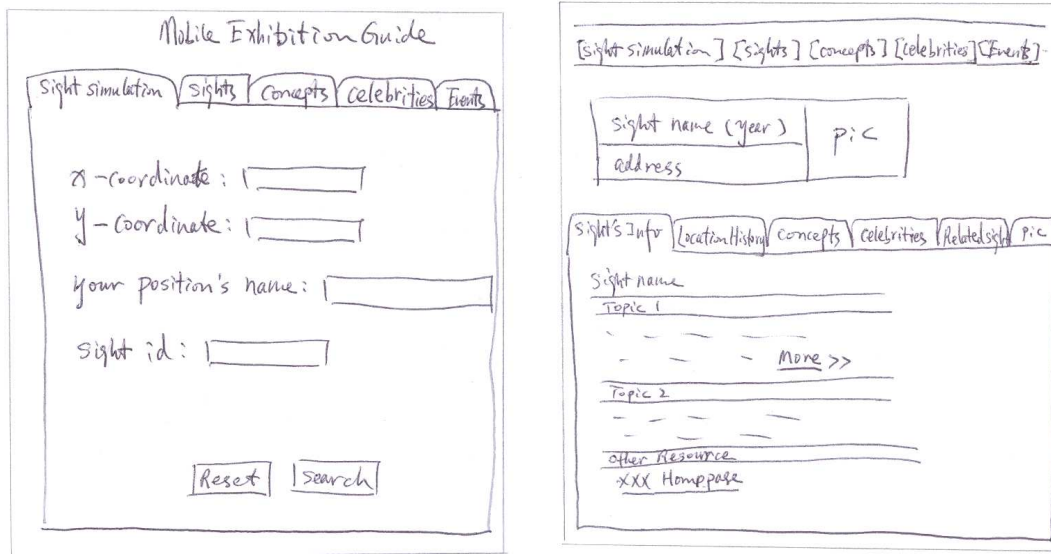 Mobile Exhibition Guide
Sight simulation Sights Concepts Celebrities Events
x-coordinate:
y-coordinate:
your position's name:
sight id:
Reset Search
[sight simulation] [sights] [concepts] [celebrities] [Events]
sight name (year) pic
address
Sight's Info Location History concepts celebrities Related sight Pic
Sight name
Topic 1
More >>
Topic 2
other Resource
XXX Homppage